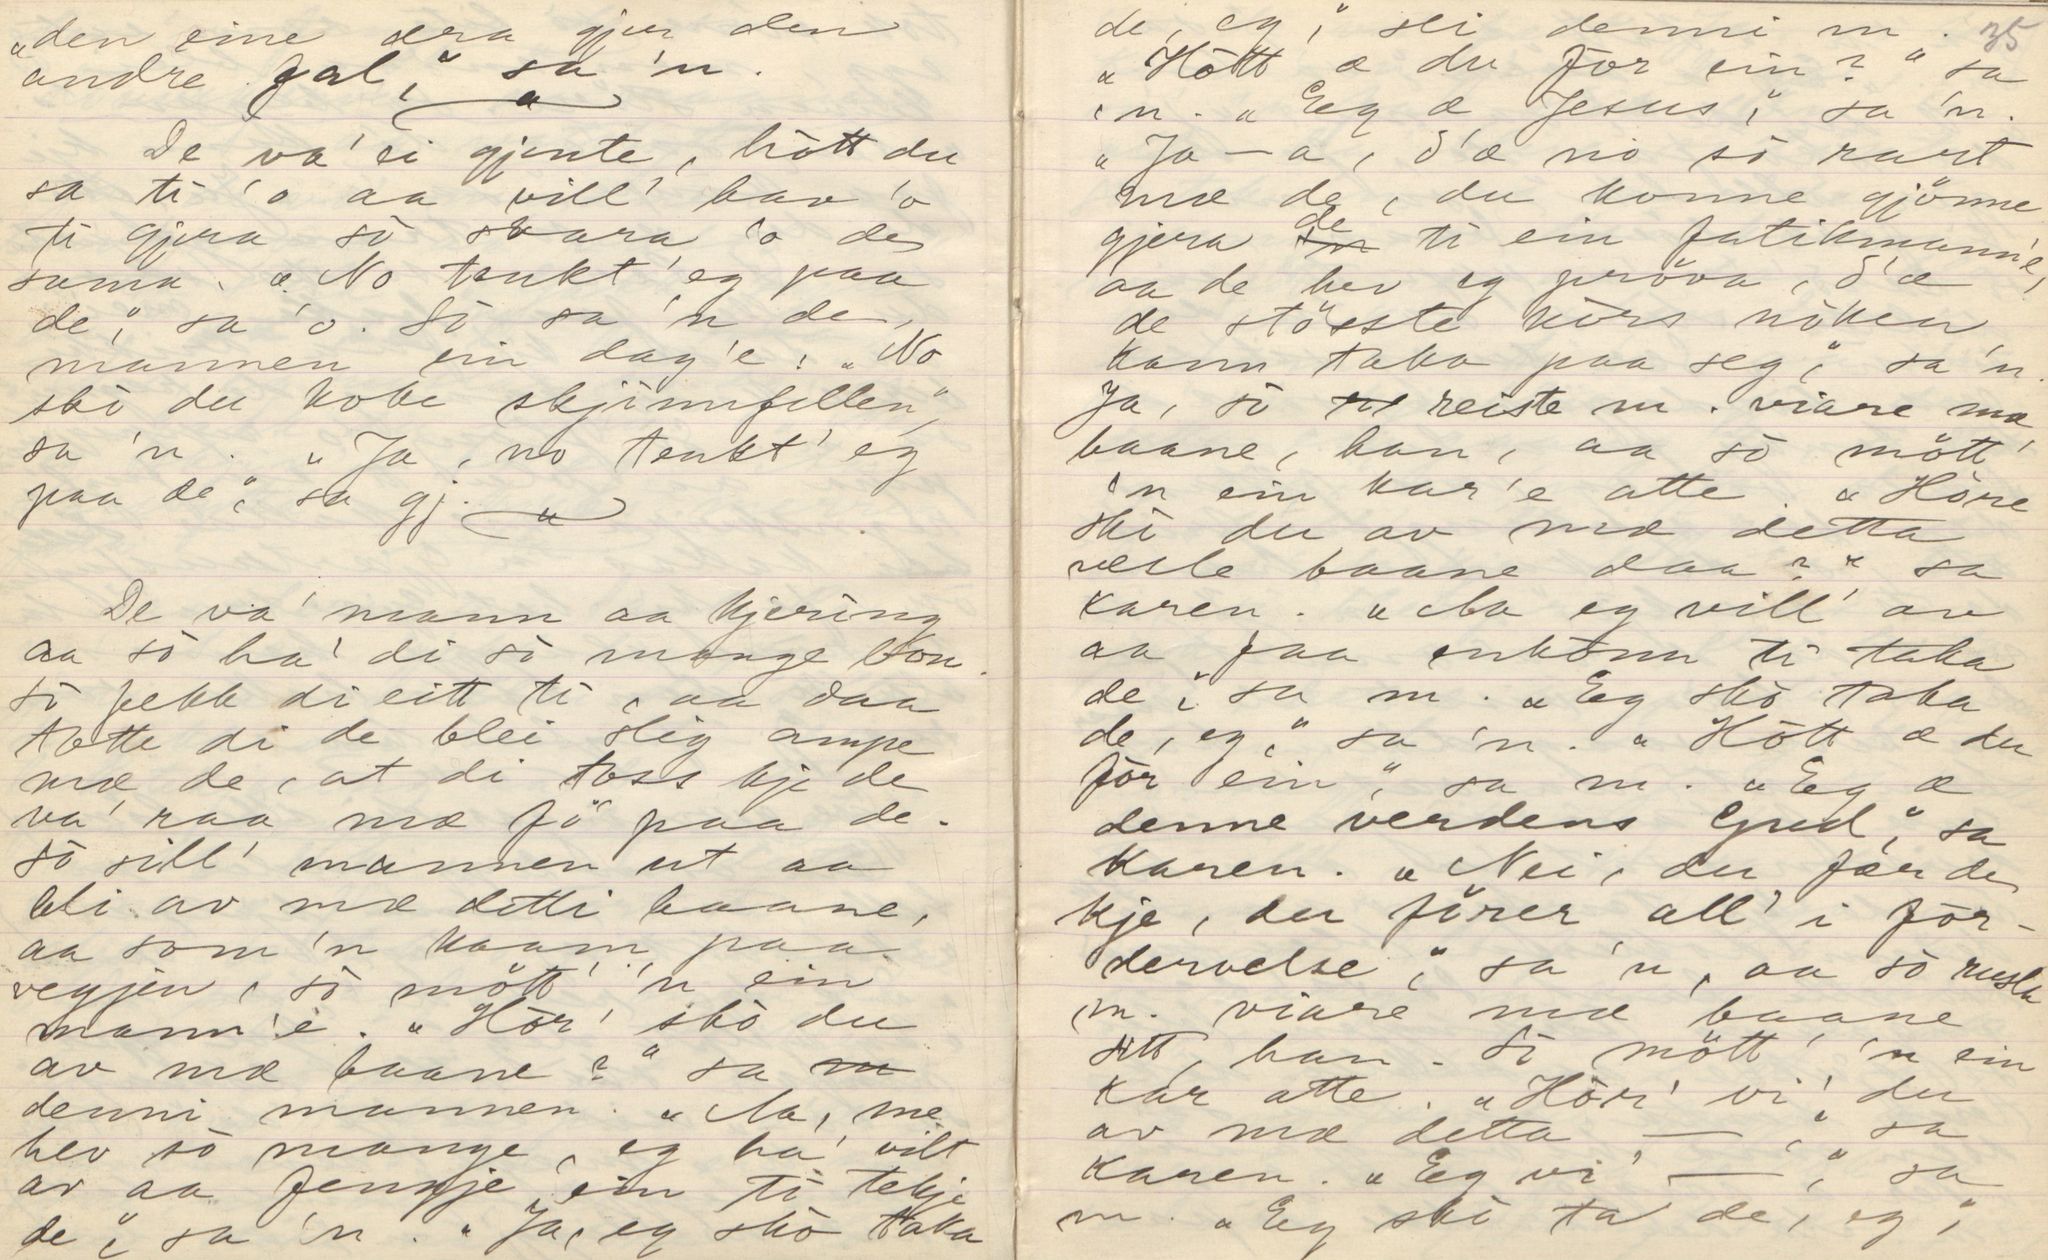 „den eine æra gjer den
andre gal," sa 'n.
De va' ei gjente, hòtt du
sa ti 'o aa vill' hav 'o
ti gjera sò svara 'o de
sama. „No tenkt' eg paa
de," sa 'o. Sò sa 'n de,
mannen ein dag'e: „No
skò du kobe skjinnfellen,"
sa 'n. „Ja, no tenkt' eg
paa de," sa gj.
De va' mann aa kjering
aa sò ha' di sò mange bon.
Sò fekk di eitt ti, aa daa
totte di de blei slig ampe
mæ de, at di toss kje de
va' raa mæ fö paa de.
Sò sill' mannen ut aa
bli av mæ detti baane,
aa som 'n kaam paa
vegjen, sò mött' 'n ein
mann'e. „Hòr' skò du
av mæ baane?" sa
denni mannen. „Aa, me
hev sò mange, eg ha' vilt
av aa fengje ein ti tekje
de," sa 'n. „Ja, eg skò taka
35
de, eg," sei denni m.
„Hòtt æ du fòr ein?" sa
'n. „Eg æ Jesus," sa 'n.
„Ja-a, d'æ no sò rart
mæ de, du konne gjönne
gjera de ti ein fatikmann'e,
aa de hev eg pröva, d'æ
de stösste kòrs nòken
kann taka paa seg," sa 'n.
Ja, sò reiste m. viare mæ
baane, han, aa sò mött'
'n ein kar'e atte. „Hòre
skò du av mæ detta
vesle baane daa?" sa
karen. „Aa eg vill' av
aa faa enkònn ti taka
de," sa m. „Eg skò taka
de, eg," sa 'n. „Hòtt æ du
fòr ein," sa m. „Eg æ
denne verdens Gud," sa
karen. „Nei, du fær de
kje, du förer all' i fòr-
dervelse," sa 'n, aa sò rusla
m. viare mæ baane
sitt, han. Sò mött' 'n ein
kar atte. „Hòr' vi' du
av mæ detta —," sa
karen. „Eg vi' —," sa
m. „Eg skò ta de, eg,"